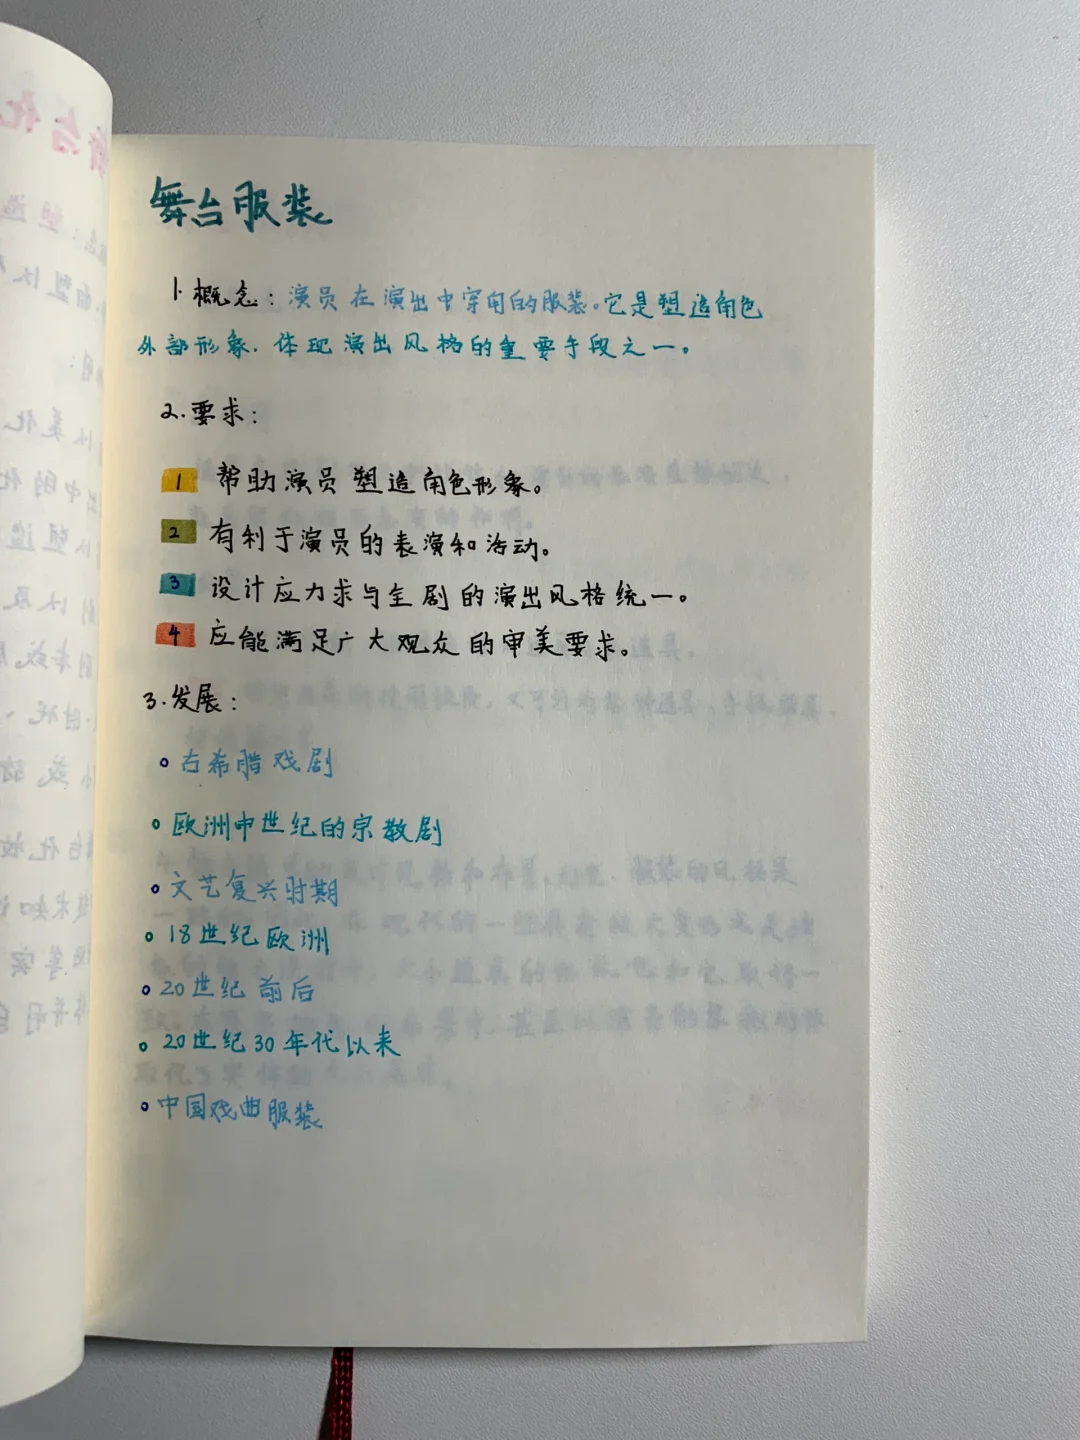 舞台服装
1.概念：演员在演出中穿用的服装。它是塑造角色
外部形象，体现演出风格的重要手段之一。
2.要求：
1 帮助演员塑造角色形象。
2 有利于演员的表演和活动。
3 设计应力求与全剧的演出风格统一。
4 应能满足广大观众的审美要求。
3.发展：
古希腊戏剧
欧洲中世纪的宗教剧
文艺复兴时期
18世纪欧洲
20世纪前后
20世纪30年代以来
中国戏曲服装